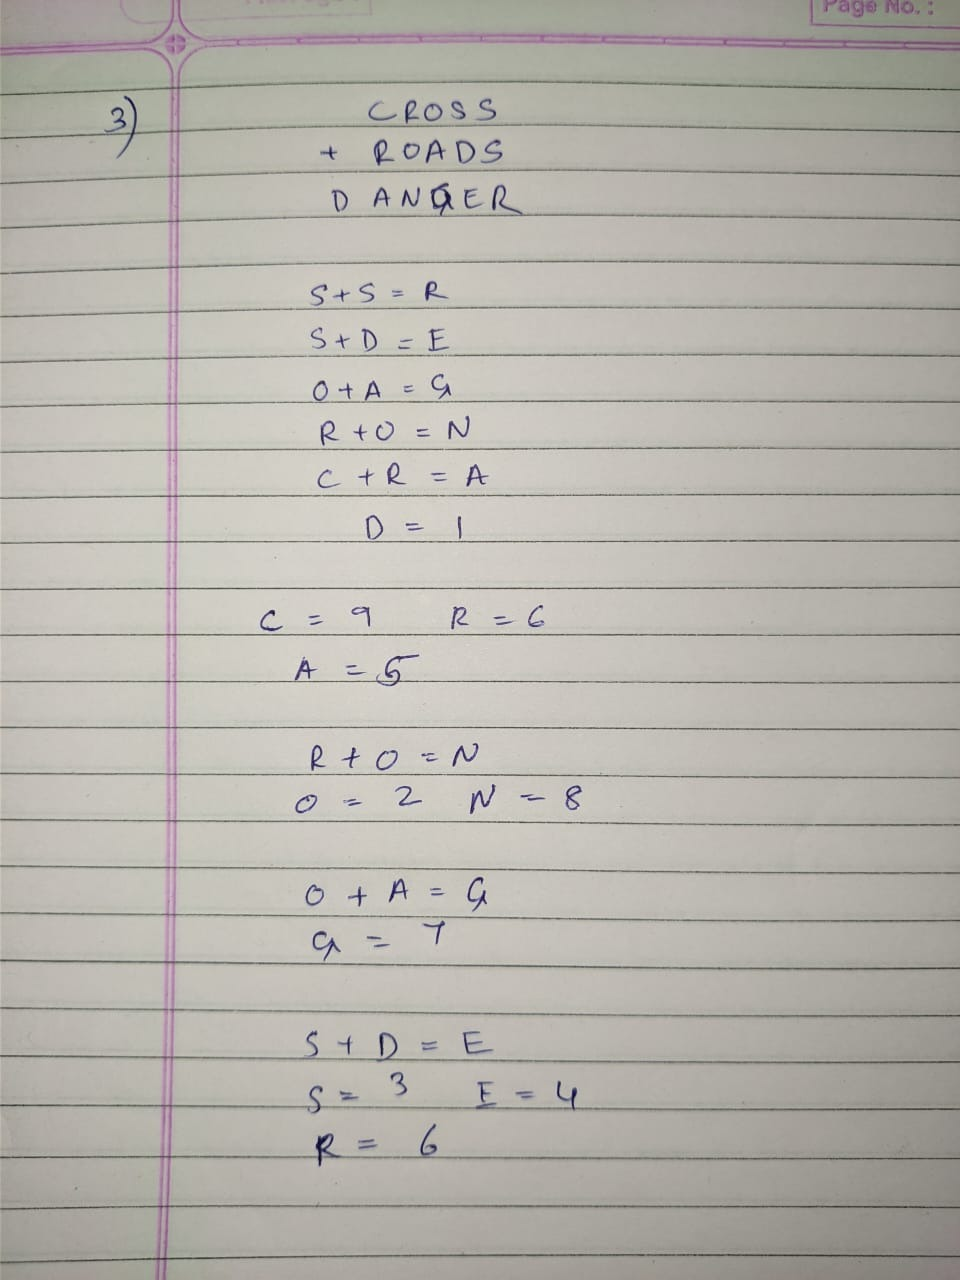 Page No. :
3) CROSS
+ ROADS
DANGER
S+S = R
S+D = E
O+A = G
R+O = N
C+R = A
D = 1
C = 9 R = 6
A = 5
R+O = N
O = 2 N = 8
O + A = G
G = 7
S + D = E
S = 3 E = 4
R = 6